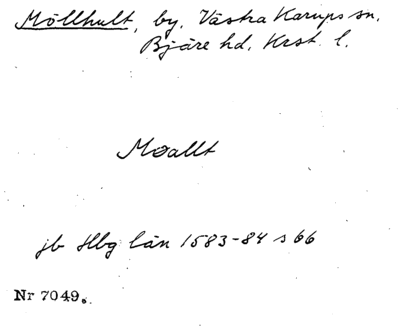 Möllhult, by. Västra Karups sn.
Bjäre hd. Krst. l.
Møallt
jb Hbg län 1583-84 s 66
Nr 7049.